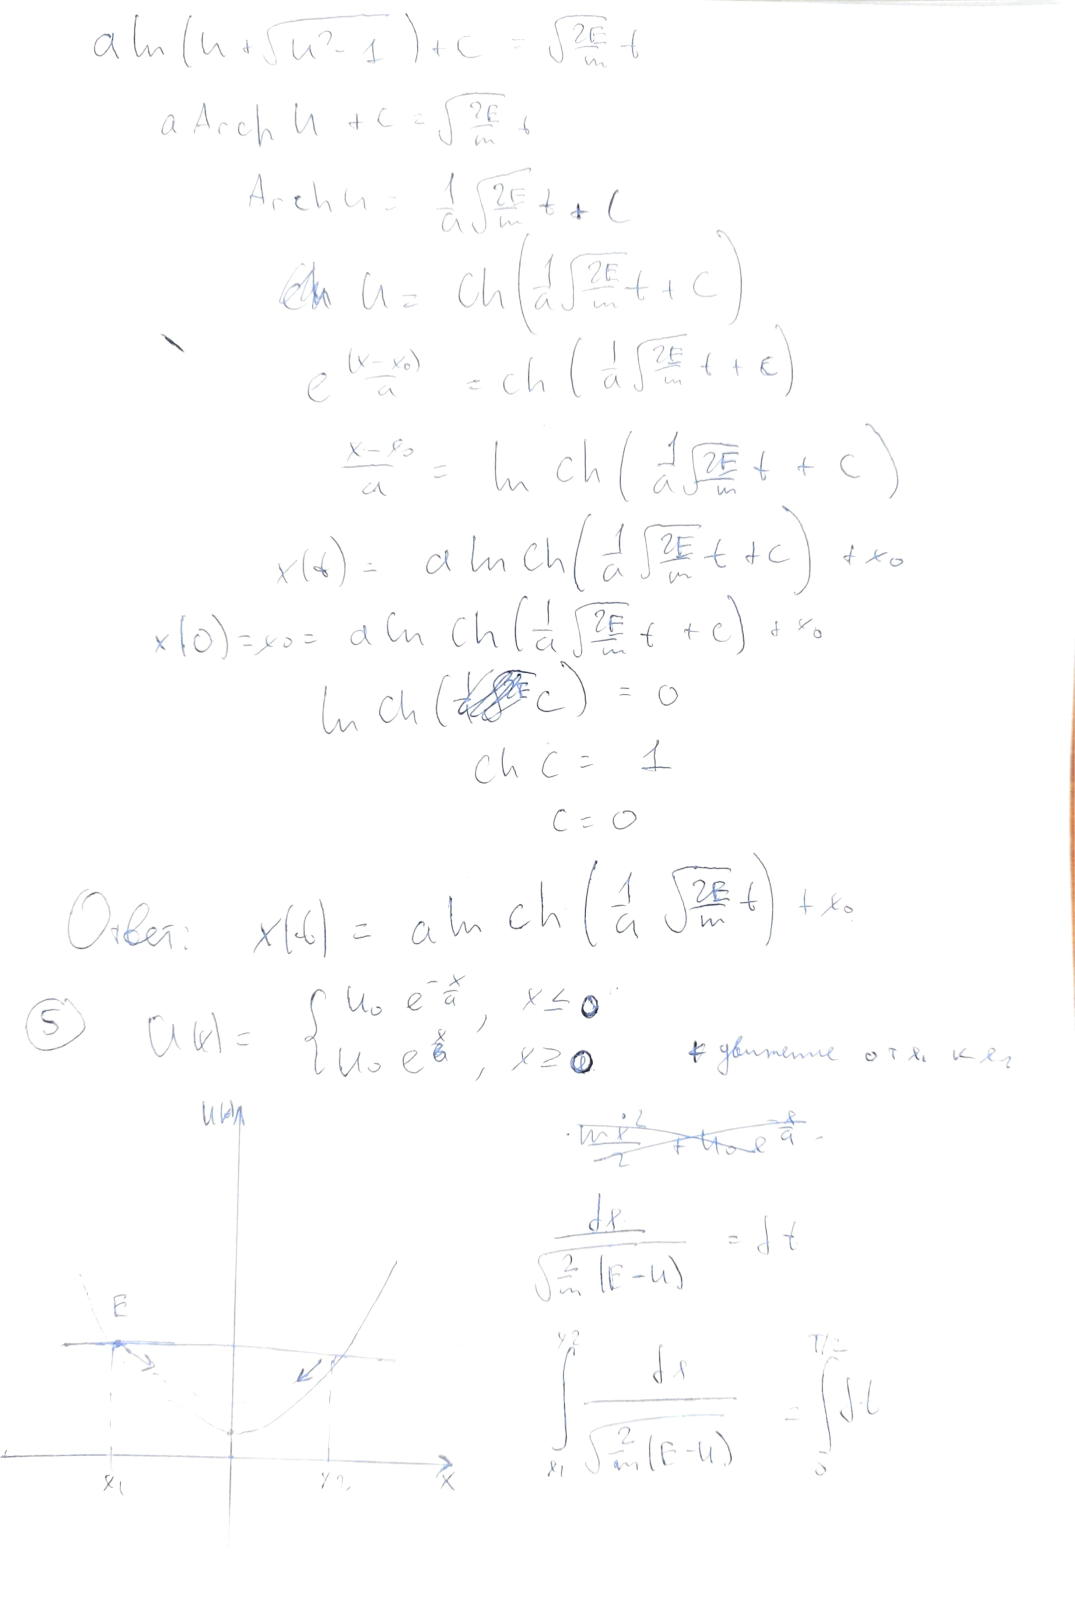 a ln(u + √(u² - 1)) + c = √(2E/m) t
a Arch u + c = √(2E/m) t
Arch u = 1/a √(2E/m) t + C
u = ch(1/a √(2E/m) t + C)
e^((x-x₀)/a) = ch(1/a √(2E/m) t + C)
(x-x₀)/a = ln ch(1/a √(2E/m) t + C)
x(t) = a ln ch(1/a √(2E/m) t + C) + x₀
x(0) = x₀ = a ln ch(1/a √(2E/m) t + C) + x₀
ln ch(C) = 0
ch C = 1
C = 0
Ответ: x(t) = a ln ch(1/a √(2E/m) t) + x₀
5 U(x) = { U₀ e^(-x/a), x ≤ 0
U₀ e^(x/a), x ≥ 0
* движение от x₁ к x₂
U(x)
dx / √(2/m (E-U)) = dt
E
∫_{x₁}^{x₂} dx / √(2/m (E-U)) = ∫_0^{T/2} dt
x₁ x₂ x